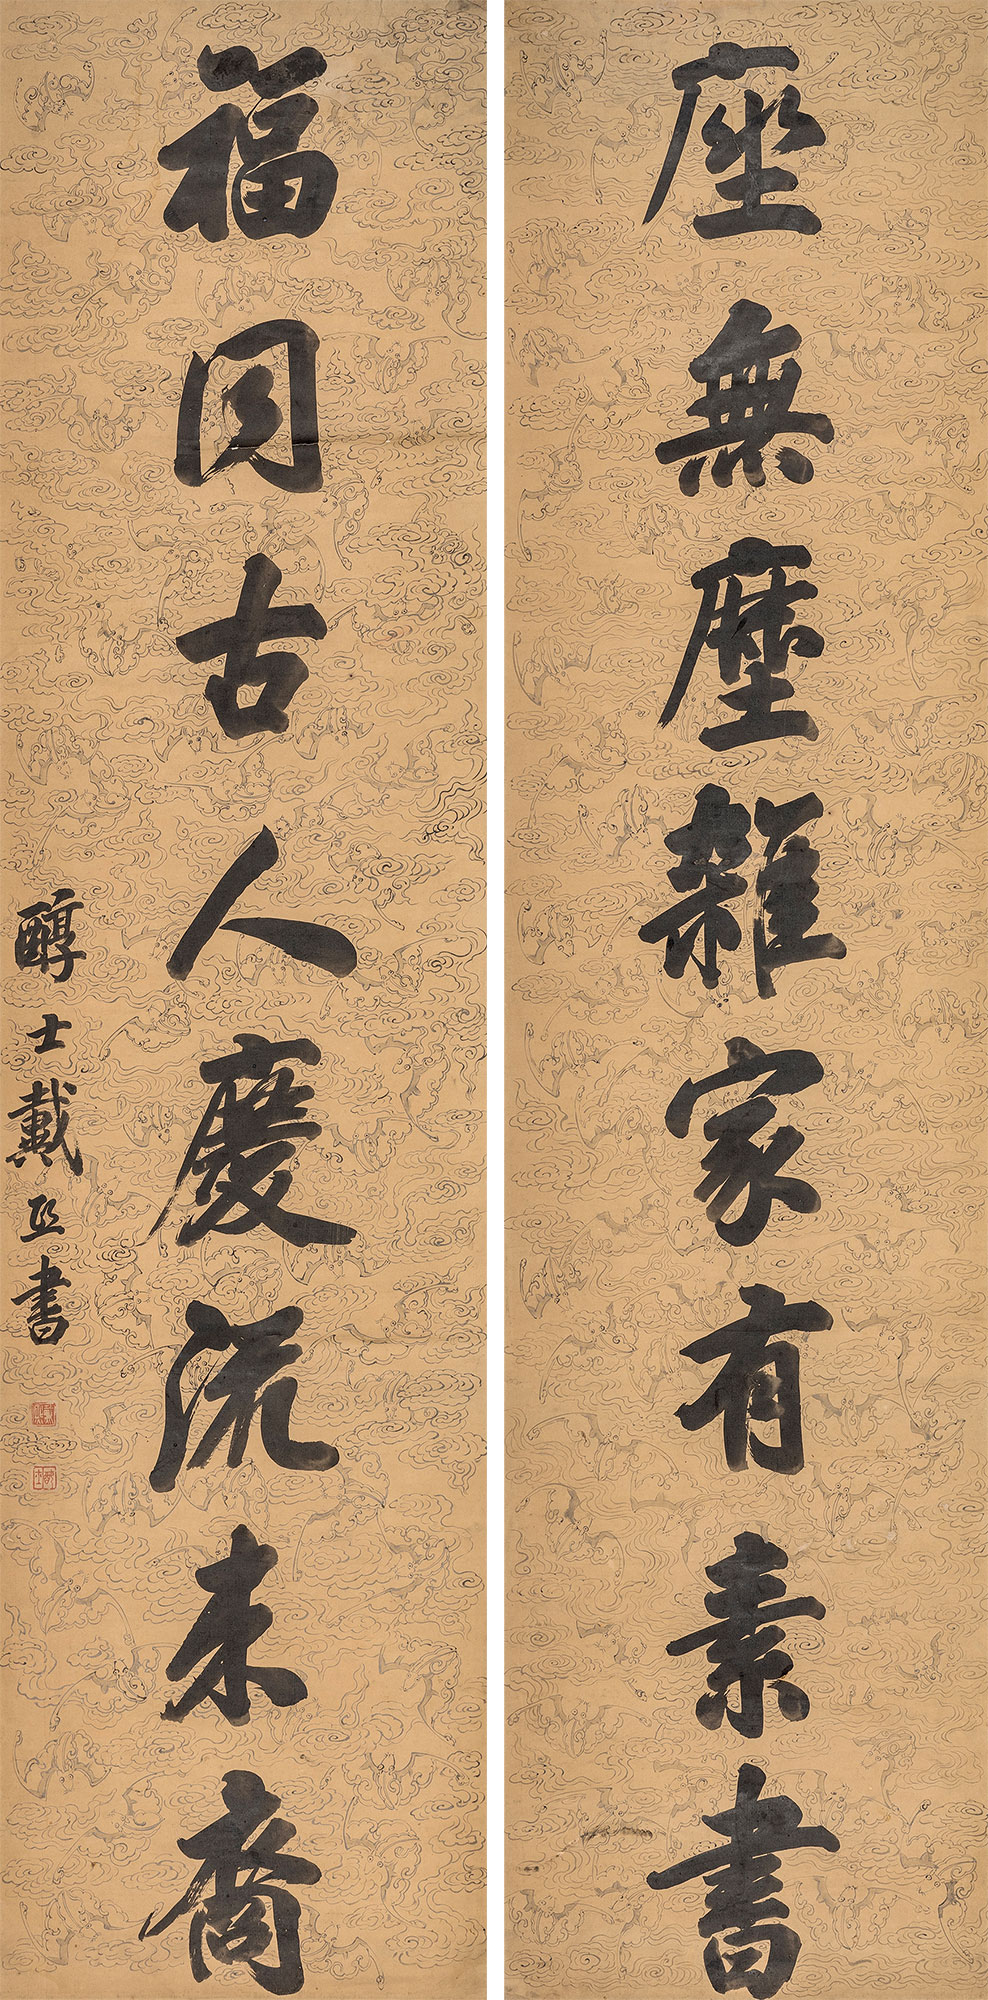 座無塵雜家有素書
福同古人慶流末裔
醇士戴熙書